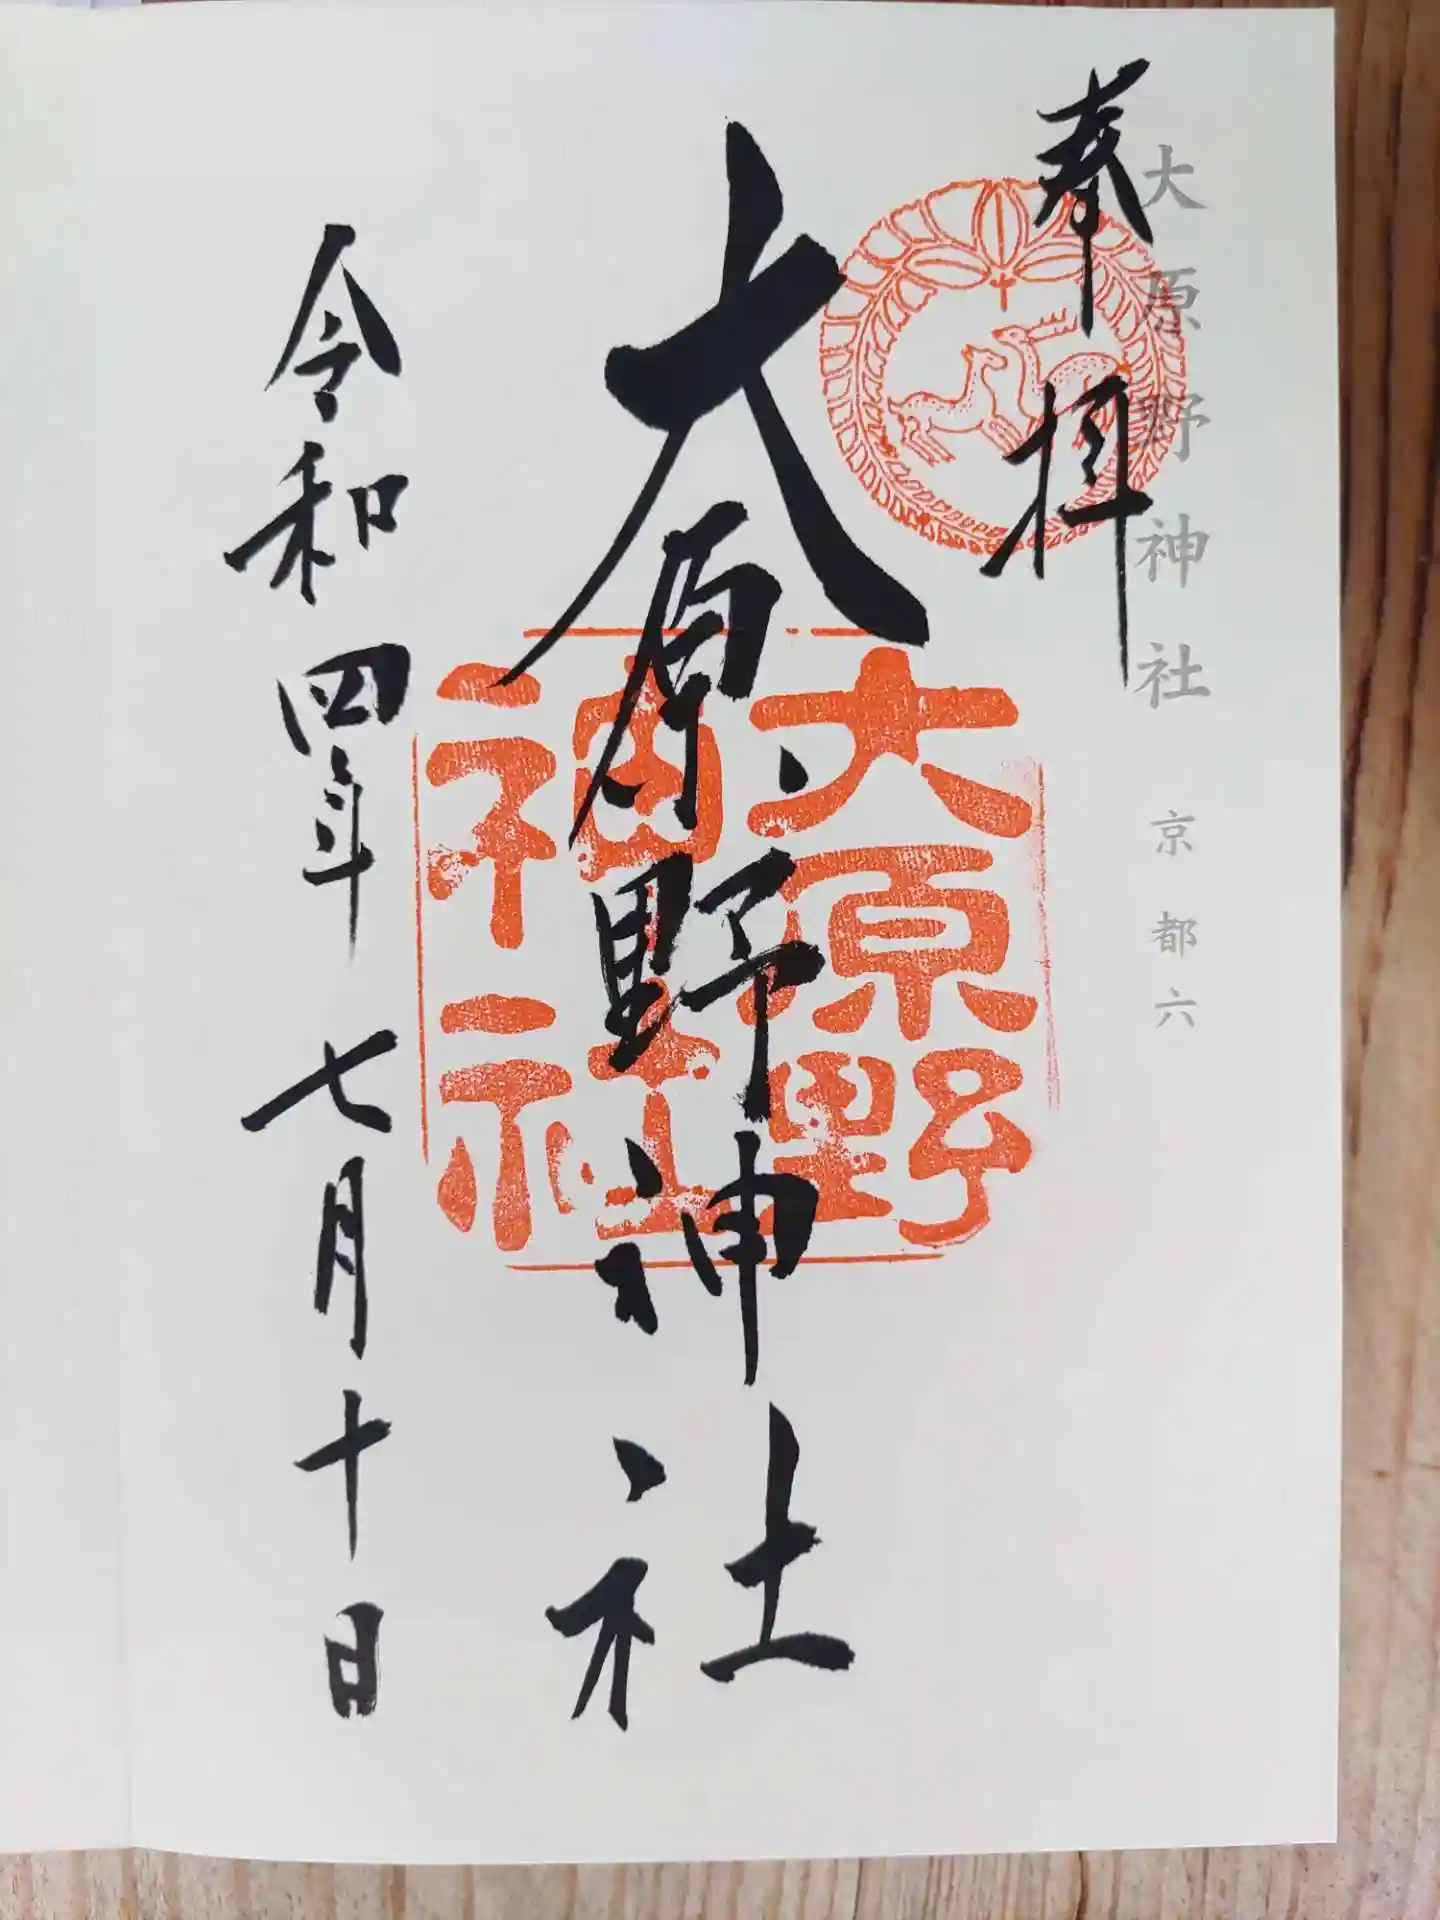 大原野神社 京都六
奉拝
大原野神社
大原野
神社
令和四年 七月十日